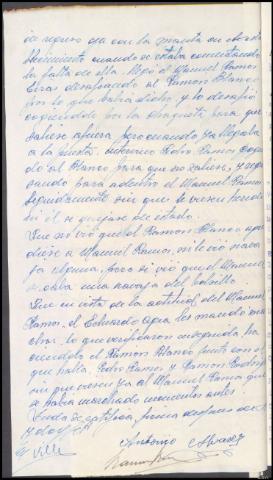 de nuevo en con la manta en el esta
blecimiento cuando se estaba comentando
la falta de ella. llegó el Manuel Ramos
Eiras desafiando al Ramon Blanco
por lo que habia dicho, y lo desafió
cogiendole por la chaqueta para que
saliese afuera pero cuando ya llegaba
a la puerta intervino Pedro Ramos cogien
do al Blanco para que no saliese, y regre
sando para adentro el Manuel Ramos
seguidamente sin que le viesen heridas
ni él se quejase de estado.
Que no vió que el Ramon Blanco agre
diese a Manuel Ramos, ni le vió nava
ja alguna, pero si vió que el Manuel
sacaba una navaja del bolsillo.
Que en vista de la actitud del Manuel
Ramos, el Eduardo les mandó mar
char, lo que verificaron enseguida, ha
ciendolo el Ramon Blanco junto con el
que habla, Pedro Ramos y Ramon
sin que viesen ya al Manuel Ramos que
se habia marchado momentos antes.
firma despues de
y doy fé
Antonio Alvarez
Ramon